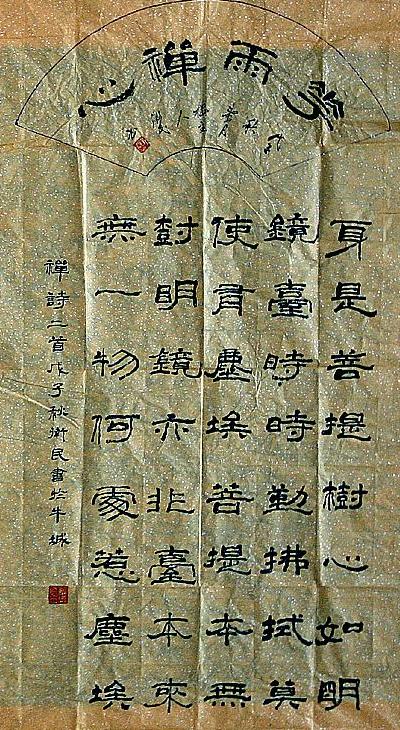 雨禪心
身是菩提樹心如明
鏡臺時時勤拂拭莫
使有塵埃菩提本無
樹明鏡亦非臺本來
無一物何處惹塵埃
禪詩二首戊子秋衛民書於牛城